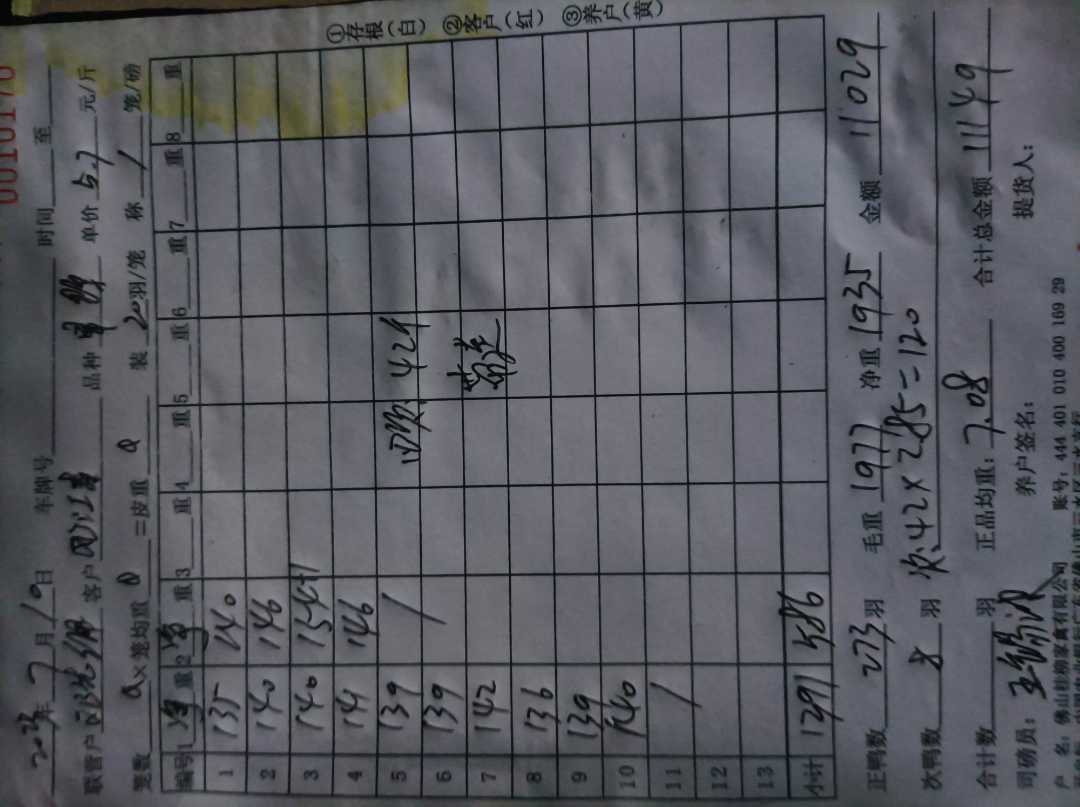 0010170
①存根(白) ②客户(红) ③养户(黄)
2023年7月19日 车牌号 时间 至
联管户 客户 四川江 品种 单价5.7元/斤
笼数 Q×笼均重Q=皮重Q 装20羽/笼 称/笼/磅
编号 1净重 2净重 3 重 4 重 5 重 6 重 7 重 8 重
1 135 140
2 140 146
3 140 154+1
4 141 146
5 139 / 四川 429
6 139 /
7 142
8 136
9 139
10 140
11 /
12
13
小计 1391 586
正鸭数 273 羽 毛重 1977 净重 1935 金额 11029
次鸭数 8 羽 次:42×2.85=120
合计数 羽 正品均重:7.08 合计总金额 11149
司磅员: 养户签名: 提货人:
户 名:佛山桂柳家禽有限公司 账号:444 401 010 400 169 29